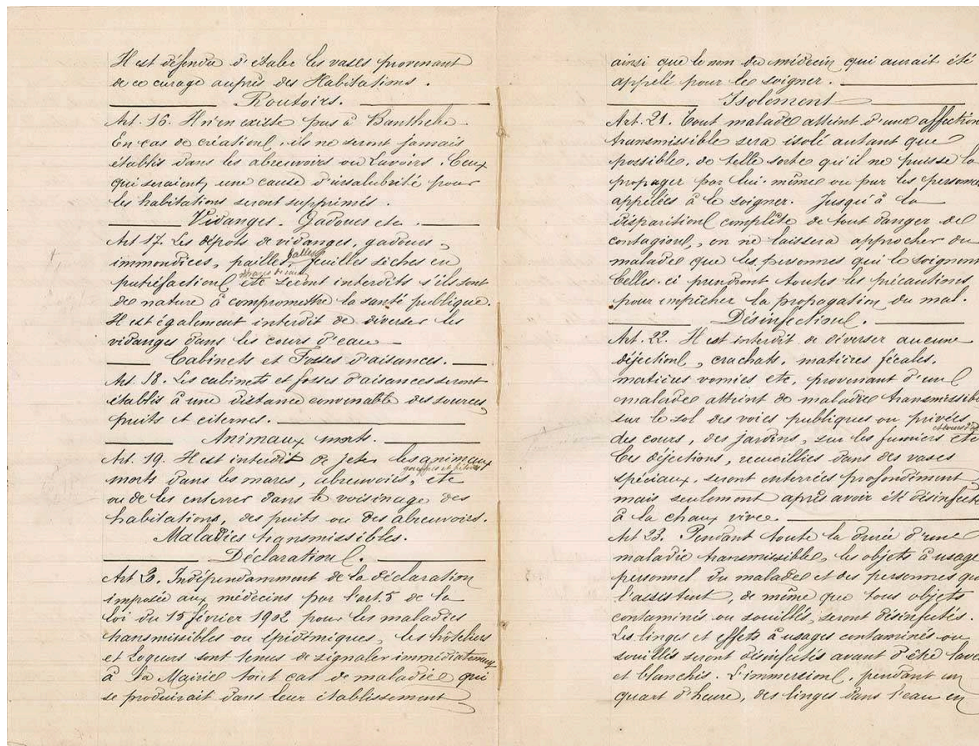 Il est défendu d'étaler les vases provenant
de ce curage auprès des Habitations.
Routoirs.
Art. 16. Il n'en existe pas à
En cas de création, ils ne seront jamais
établis dans les abreuvoirs ou Lavoirs. Ceux
qui seraient une cause d'insalubrité pour
les habitations seront supprimés.
Vidanges. Gadoues etc.
Art 17. Les dépôts de vidanges, gadoues,
immondices, pailles, balles, feuilles sèches en
putréfaction, etc seront interdits s'ils sont
de nature à compromettre la santé publique.
Il est également interdit de déverser les
vidanges dans les cours d'eau
Cabinets et Fosses d'aisances.
Art. 18. Les cabinets et fosses d'aisances seront
établis à une distance convenable des sources,
puits et citernes.
Animaux morts.
Art. 19. Il est interdit de jeter les animaux
morts dans les mares, abreuvoirs, etc
ou de les enterrer dans le voisinage des
habitations, des puits ou des abreuvoirs.
Maladies transmissibles.
Déclaration.
Art 2. Indépendamment de la déclaration
imposée aux médecins par l'art. 5 de la
loi du 15 février 1902 pour les maladies
transmissibles ou épidémiques, les hôteliers
et Logeurs sont tenus de signaler immédiatement
à la Mairie tout cas de maladie qui
se produirait dans leur établissement
ainsi que le nom du médecin qui aurait été
appelé pour le soigner.
Isolement
Art. 21. Tout malade atteint d'une affection
transmissible sera isolé autant que
possible, de telle sorte qu'il ne puisse la
propager par lui-même ou par les personnes
appelées à le soigner. Jusqu'à la
disparition complète de tout danger de
contagion, on ne laissera approcher du
malade que les personnes qui le soignent
Celles-ci prendront toutes les précautions
pour empêcher la propagation du mal.
Désinfection.
Art. 22. Il est interdit de déverser aucune
déjection, crachats, matières fécales,
matières vomies etc, provenant d'un
malade atteint de maladie transmissible
sur le sol des voies publiques ou privées,
des cours, des jardins, sur les fumiers etc.
Ces déjections, recueillies dans des vases
spéciaux, seront enterrées profondément
mais seulement après avoir été désinfect
à la chaux vive.
Art 23. Pendant toute la durée d'une
maladie transmissible, les objets à usage
personnel du malade et des personnes qui
l'assistent, de même que tous objets
contaminés ou souillés, seront désinfectés.
Les linges et effets à usages contaminés ou
souillés seront désinfectés avant d'être lavés
et blanchis. L'immersion, pendant un
quart d'heure, des linges dans l'eau en